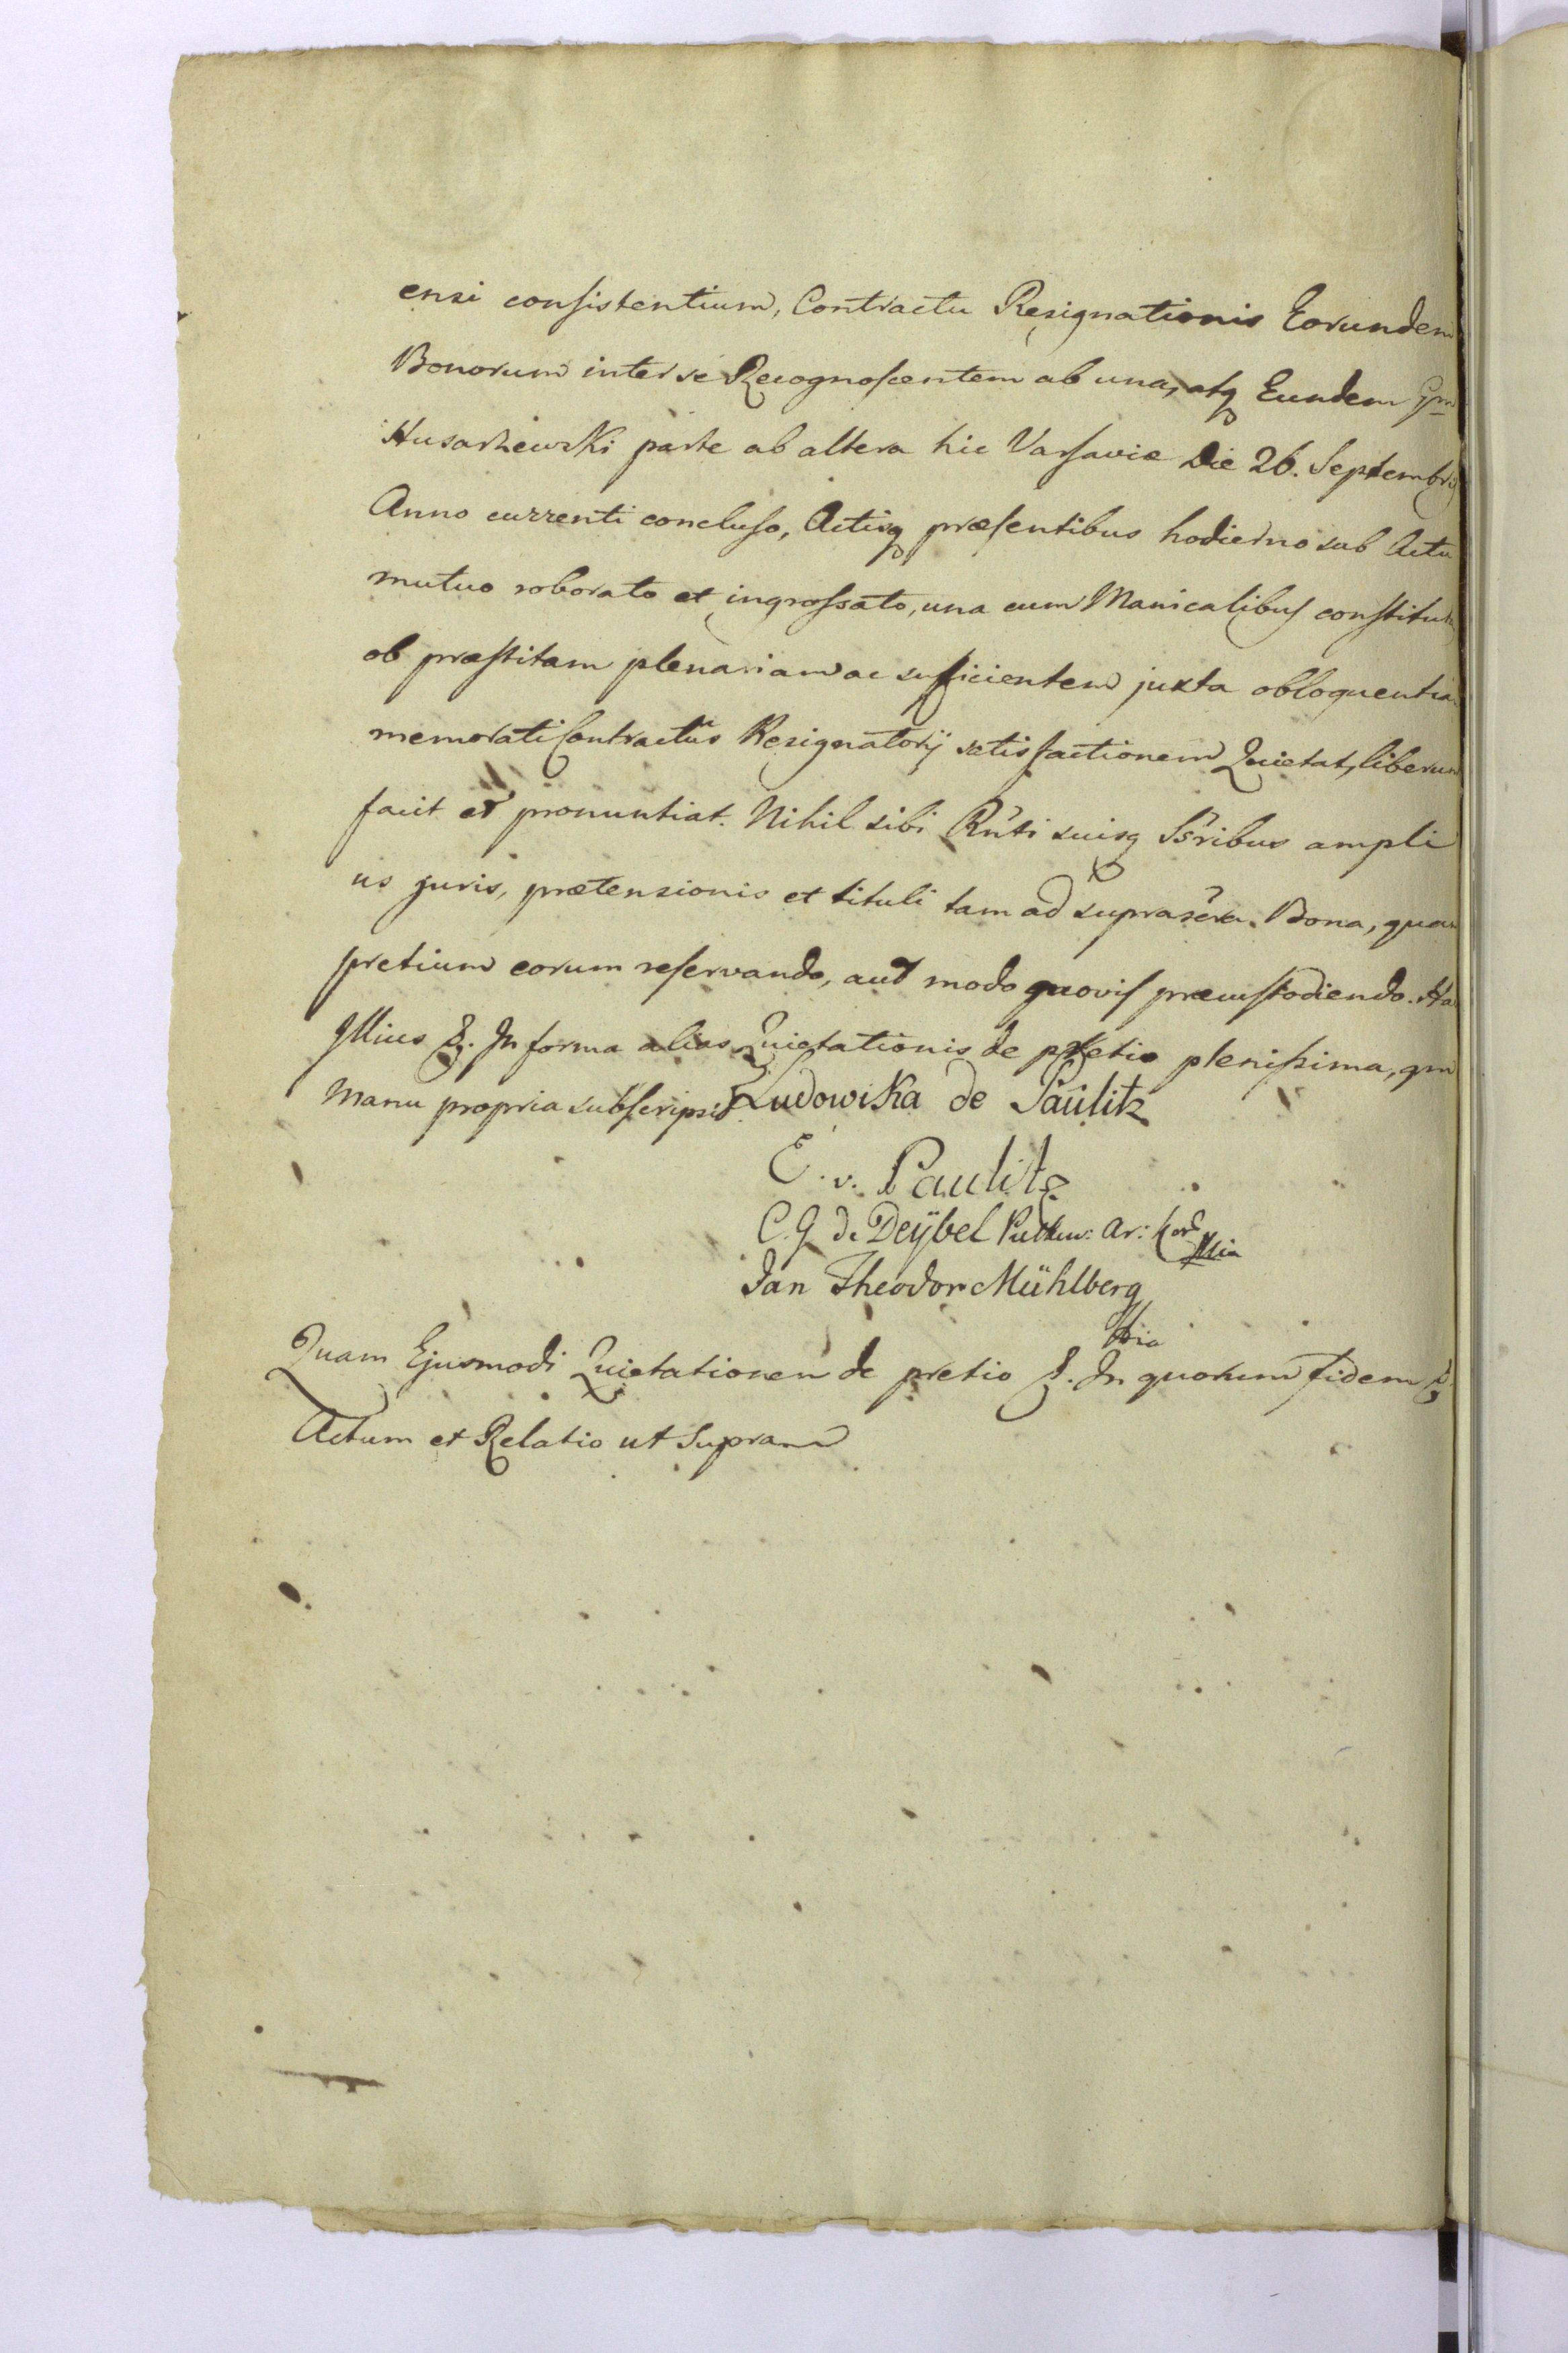 ensi consistentium, Contractu Resignationis Eorundem
Bonorum inter se Recognoscentem ab una, atq Eundem
Husarzewski parte ab altera hic Varsaviæ Die 26. Septembris
Anno currenti concluso, Actisq præsentibus hodierno sub Actu
mutuo roborato et ingrossato, una cum Manicalibus
ob præstitam plenariam ac sufficientem juxta obloquentiam
memorati Contractus Resignatorij satisfactionem Quietat, liberum
facit et pronuntiat. Nihil sibi Rnti suisq Ssribus ampli
us juris, prætensionis et tituli tam ad suprascra Bona, quam
pretium eorum reservando, aut modo quovis præcustodiendo.
Illius &. In forma alias Quietationis de pretio plenissima, qm
Manu propria subscripsit. Ludowika de Paulitz
E. v. Paulitz
C. G de Deÿbel Pulkow: Ar: Kor
Jan Theodor Mühlberg
Quam Ejusmodi Quietationem de pretio &. In quorum fidem &
Actum et Relatio ut Supra